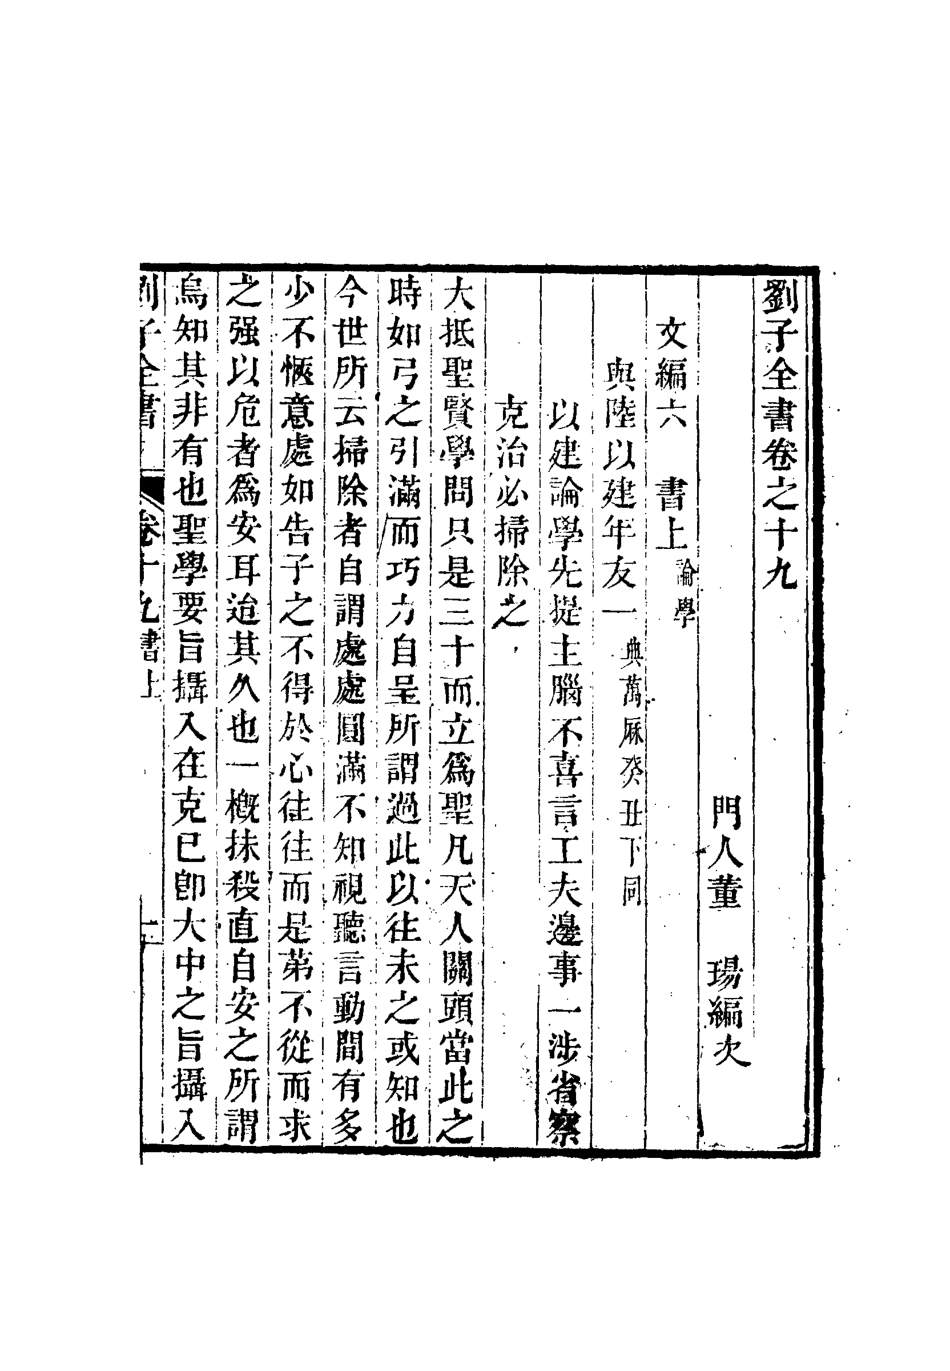 劉子全書卷之十九
門人董　瑒編次
文編六　書上論學
與陸以建年友一典萬厤癸丑下同
以建論學先提主腦不喜言工夫邊事一涉省察
克治必掃除之
大抵聖賢學問只是三十而立爲聖凡天人關頭當此之
時如弓之引滿而巧力自呈所謂過此以往未之或知也
今世所云掃除者自謂處處圓滿不知視聽言動間有多
少不愜意處如告子之不得於心往往而是第不從而求
之强以危者爲安耳迨其久也一槪抹殺直自安之所謂
烏知其非有也聖學要旨攝入在克已卽大中之旨攝入
劉子全書　卷十九書上　一